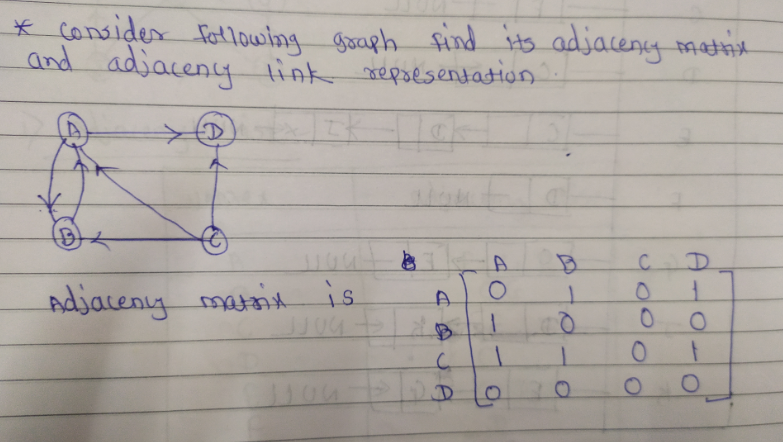 * consider following graph find its adjaceny matrix
and adjaceny link representation.
A D
B C
A B C D
Adjaceny matrix is A 0 1 0 1
B 1 0 0 0
C 1 1 0 1
D 0 0 0 0